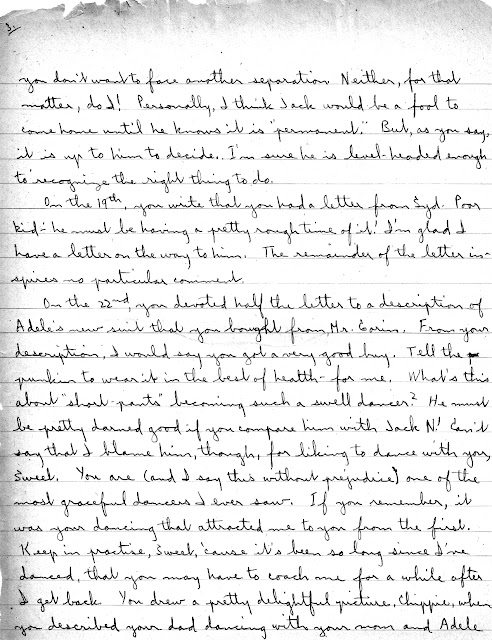 3.
you don't want to face another separation. Neither, for that
matter, do I! Personally, I think Jack would be a fool to
come home until he knows it is "permanent." But, as you say,
it is up to him to decide. I'm sure he is level-headed enough
to recognize the right thing to do.
On the 19th, you write that you had a letter from Syd. Poor
kid - he must be having a pretty rough time of it! I'm glad I
have a letter on the way to him. The remainder of the letter in-
spires no particular comment.
On the 22nd, you devoted half the letter to a description of
Adele's new suit that you bought from Mr. Earin. From your
description, I would say you got a very good buy. Tell the
punkin to wear it in the best of health - for me. What's this
about "short-pants" becoming such a swell dancer? He must
be pretty darned good if you compare him with Jack N.! Can't
say that I blame him, though, for liking to dance with you,
Sweet. You are (and I say this without prejudice) one of the
most graceful dancers I ever saw. If you remember, it
was your dancing that attracted me to you from the first.
Keep in practise, Sweet, 'cause it's been so long since I've
danced, that you may have to coach me for a while after
I get back. You drew a pretty delightful picture, Chippie, when
you described your dad dancing with your mom and Adele